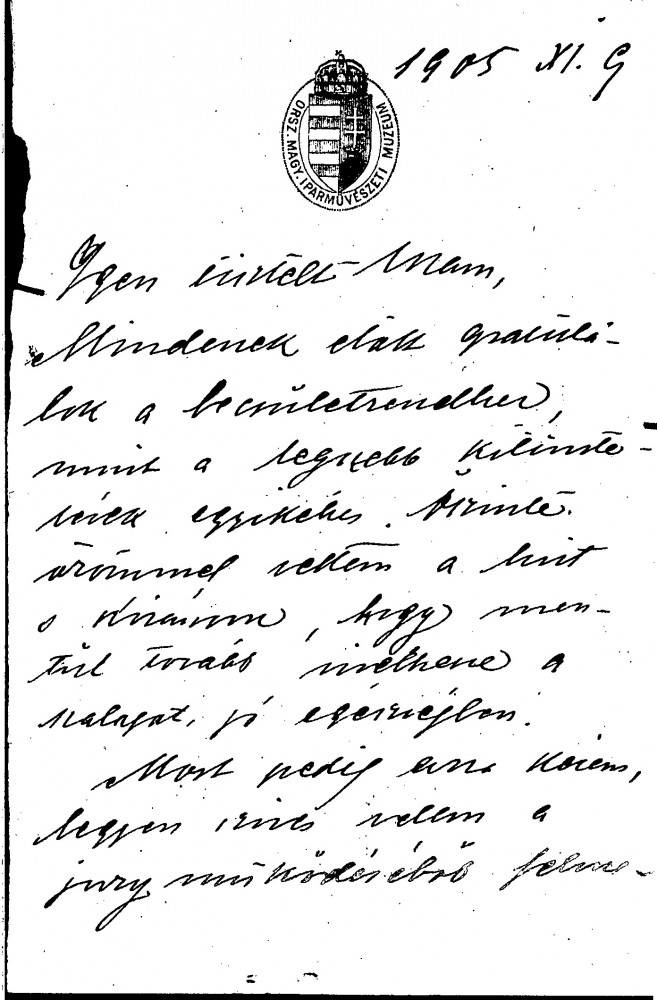 1905 XI. 9
ORSZ. MAGY. IPARMŰVÉSZETI MUZEUM
Igen tisztelt Uram,
Mindenek előtt gratulá-
lok a becsületrendhez,
mint a legszebb kitünte-
tések egyikéhez. Őszinte
örömmel vettem a hírt
s kívánom, hogy men-
tül tovább viselhesse a
szalagot, jó egészségben.
Most pedig arra kérem,
legyen szíves velem a
jury működéséből felme-